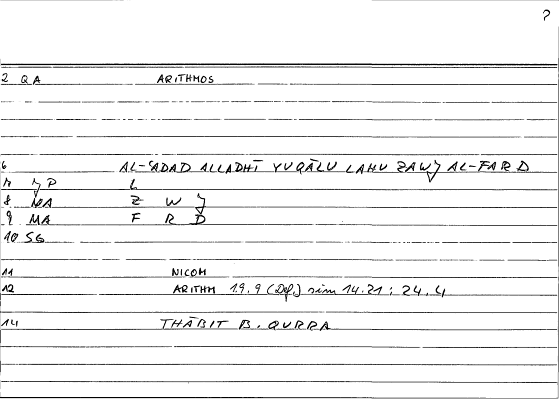 ?
2 QA ARITHMOS
6 AL-ʿADAD ALLADHĪ YUQĀLU LAHU ZAWǧ AL-FARD
ǧP L
8 MA Z W ǧ
9 MA F R D
10 SG
11 NICOM
12 ARITHM 19.9 (Def.) sim 14.21 : 24.4
14 THĀBIT B. QURRA